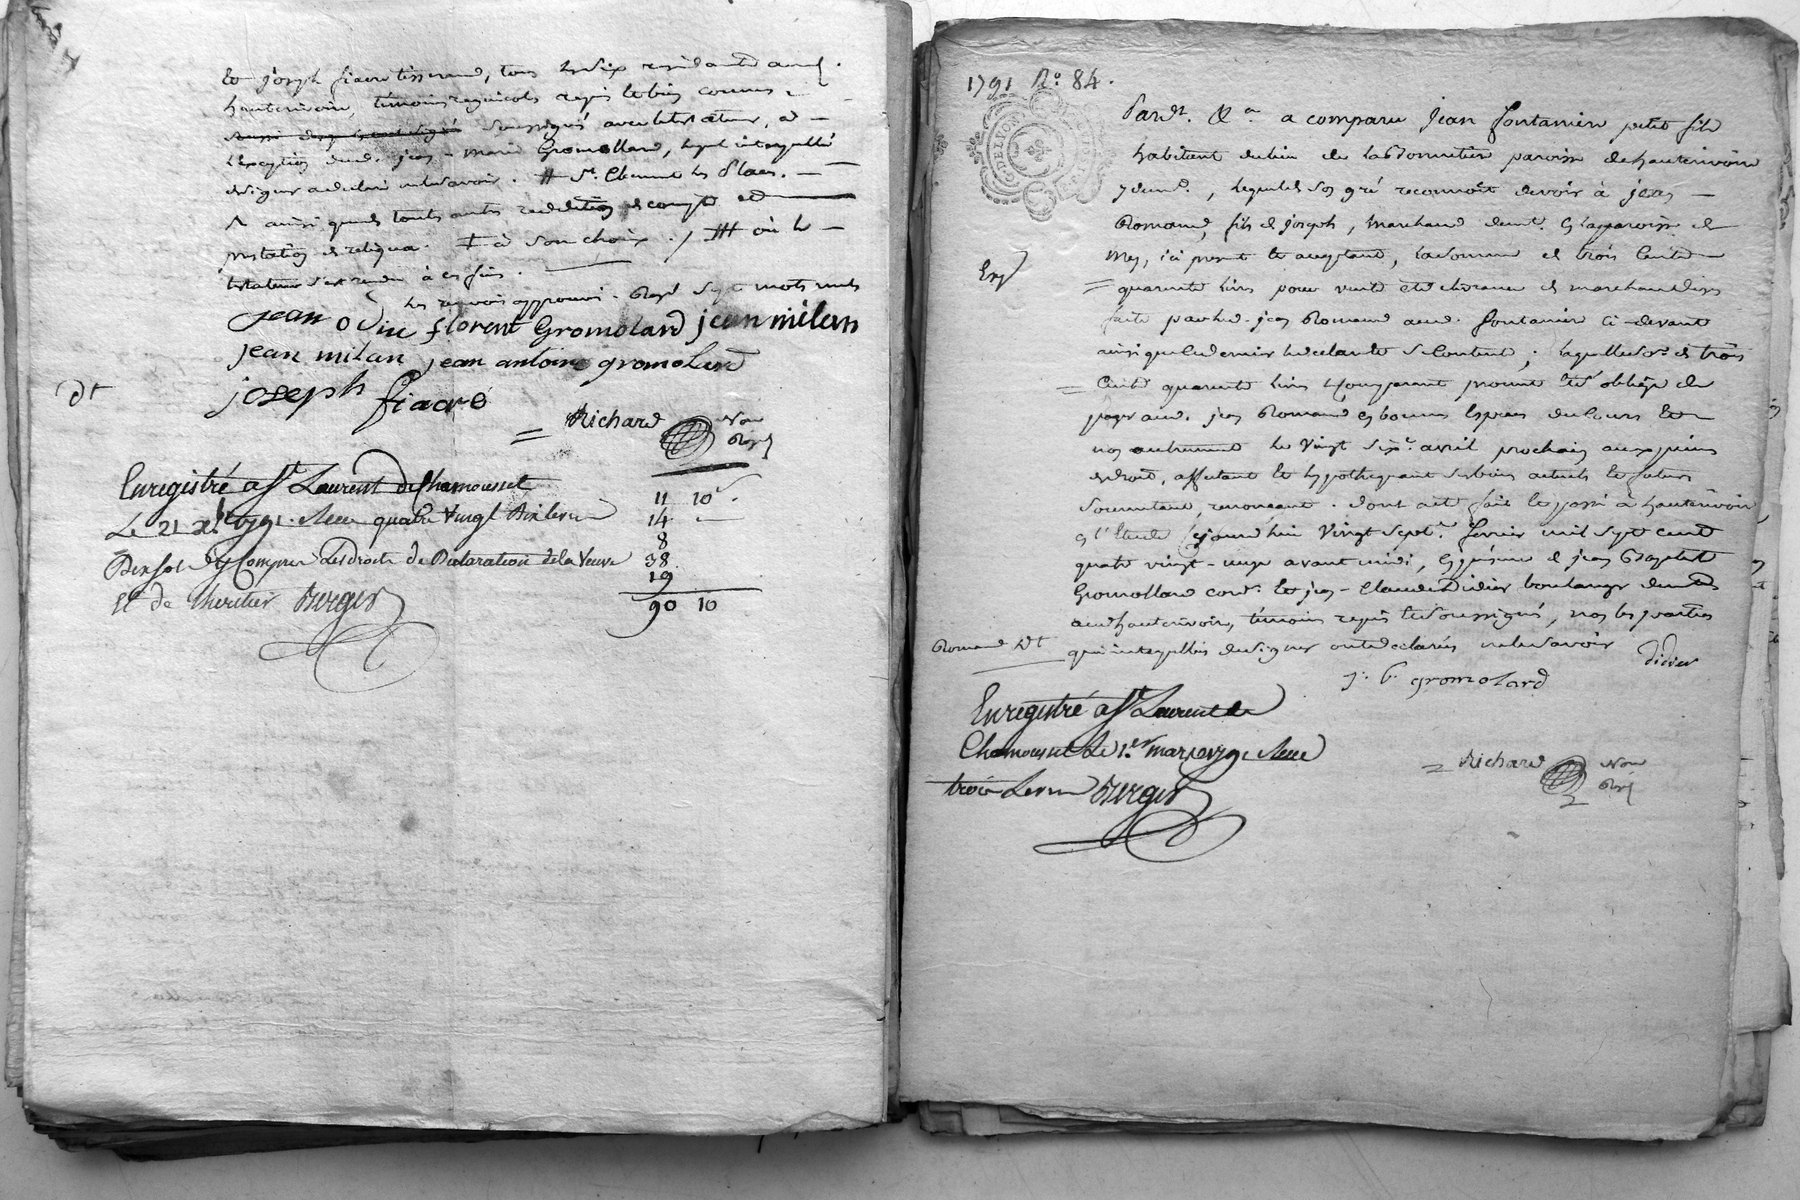 et joseph fiacre tisserand, tous les six residants aud.
hauterivoir, témoins requis et bien connus
soussignés avec le testateur, à
l'exception dud. jean-marie Gromollard, lequel interpellé
de signer a déclaré ne le savoir. # St. Clement les Places.
ainsi que toute autre reddition de compte et
prestation de reliqua. à son choix ./ où le
testateur s'est rendu à ces fins.
les renvois approuvés. Rayé sept mots nuls
jean odin florent Gromolard jean milan
jean milan jean antoine gromolard
Dt
joseph fiacre
Richard Nore
Royl
Enregistré a St Laurent de Chamousset 11 10
Le 21 1791. Reçu quatre Vingt Dix livres 14
8
Dix sols y Compris Les droits de Declaration de la Veuve 38
19
Et de l'heritier Berger 90 10
1791 No. 84.
G. DE LYON
Pardt. &a a comparu Jean fontanière petit fils
habitant du lieu de la paroisse de hautrivoire
y demt., lequel de son gré reconnoît devoir à jean
Romand, fils de joseph, marchand demt. en la paroisse de
Mey, ici present et acceptant, la somme de trois cents
Exp
quarante livres pour vente et délivrance de marchandises
faite par led. jean Romand aud. fontanière ci-devant
ainsi que le dernier le déclare et s'en contente; laquelle so. de trois
cents quarante livres le comparant promet et s'oblige de
payer aud. jean Romand en bonnes espèces du cours et
non autrement le vingt six avril prochain aux peines
de droit, affectant et hypothequant ses biens actuels et futurs
soumettant, renonçant. Dont acte fait et passé à hauterivoir
en l'etude cejourd'hui vingt sept. fevrier mil sept cent
quatre vingt-onze avant midi, en présence de jean Baptiste
Gromollard cord. et jean-Claude Didier boulanger demts.
aud hauterivoir, témoins requis et soussignés, non les parties
Romand Dt
qui interpellées de signer ont déclaré ne le savoir
didier
j. b. gromolard
Enregistré a St Laurent de
Chamousset Le 1er mars 1791 Reçu
trois Livres Berger
Richard Nore
Royl